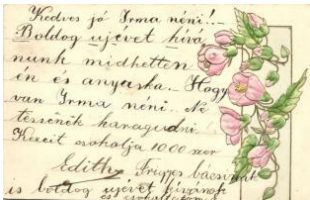 Kedves jó Irma néni!..
Boldog ujévet kívá
nunk midketten
én és anyuska. Hogy
van Irma néni. Ne
tessenék haragudni!
Kezeit csokolja 1000 szer
Edith Fréges bácsinak
is boldog ujévet kivánok
és csokoltatom